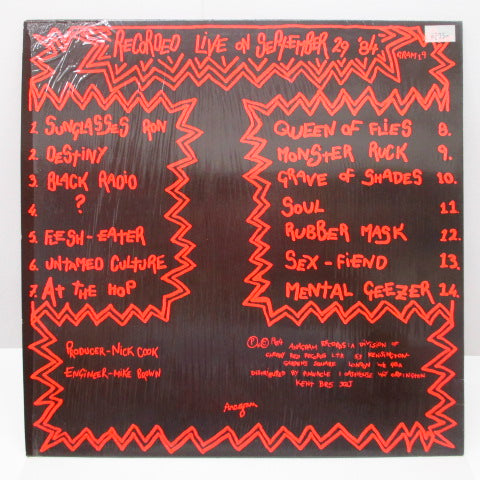 RECORDED LIVE ON SEPTEMBER 29 '84.
GRAM 19
1. SUNGLASSES RON
2. DESTINY
3. BLACK RADIO
4. ?
5. FLESH-EATER
6. UNTAMED CULTURE
7. AT THE HOP
QUEEN OF FLIES 8.
MONSTER RUCK 9.
GRAVE OF SHADES 10.
SOUL 11
RUBBER MASK 12.
SEX-FIEND 13.
MENTAL GEEZER 14.
PRODUCER-NICK COOK
ENGINEER-MIKE BROWN
Ⓟ © 1984 ANAGRAM RECORDS: A DIVISION OF
CHERRY RED RECORDS LTD 53 KENSINGTON
GARDENS SQUARE LONDON W2 4BA
DISTRIBUTED BY PINNACLE ORPINGTON
KENT BR5
Anagram